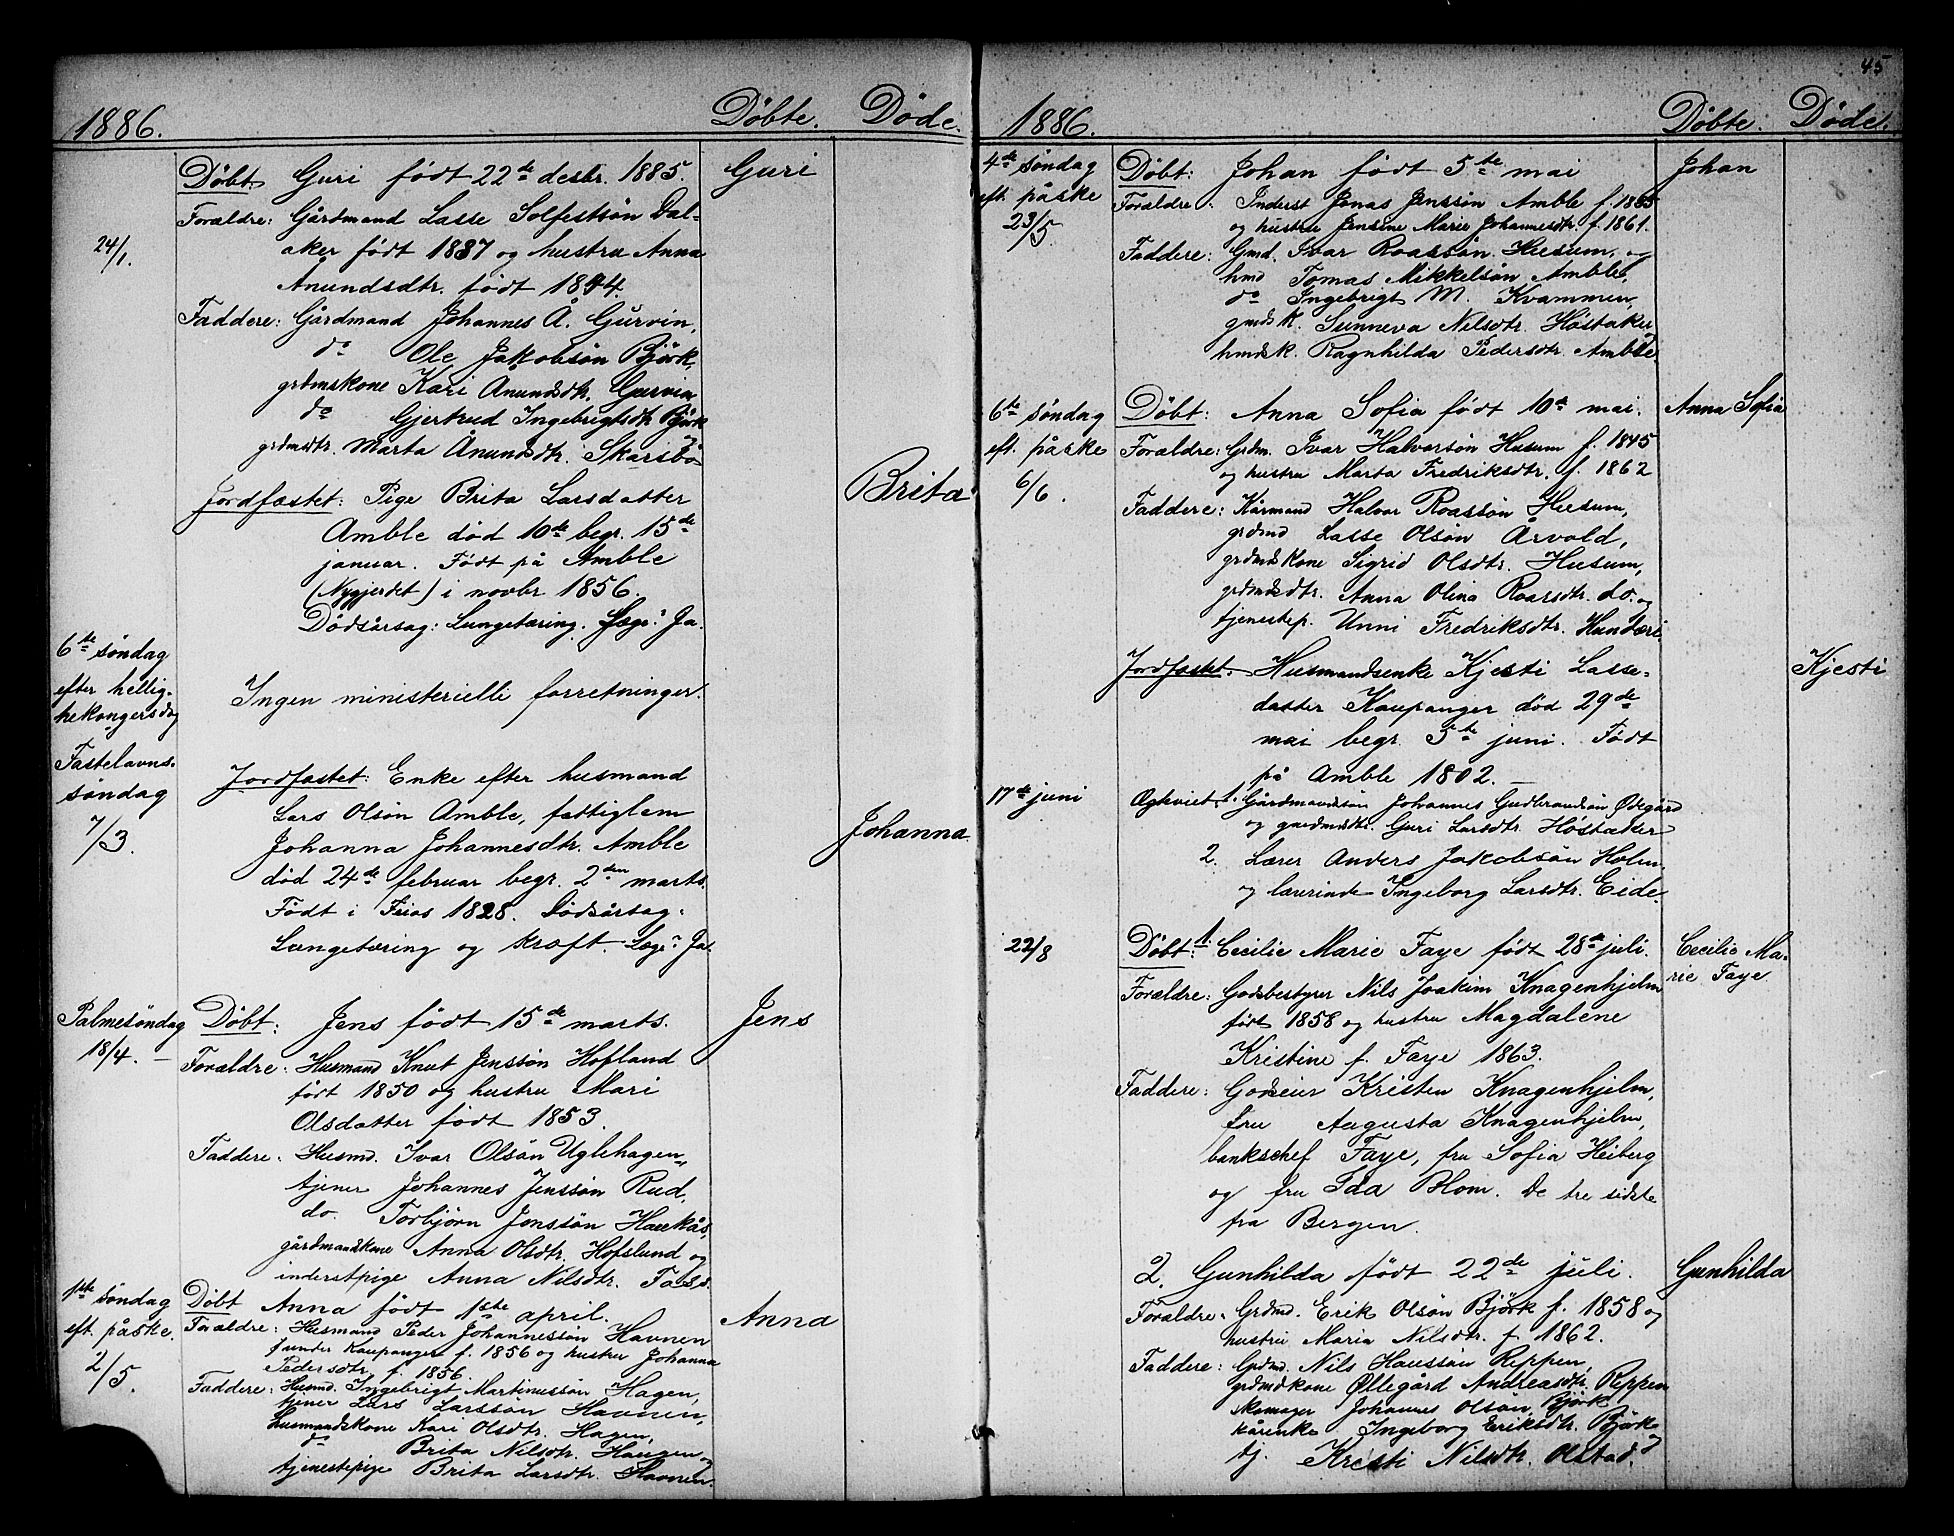 1886. Döbte. Döde.
24/1.
Döbt Guri født 22de desbr. 1885. Guri
Forældre: Gårdmand Lasse Solfestsøn Dal-
aker født 1837 og hustru Anna
Anundsdtr. født 1844.
Faddere: Gårdmand Johannes Å. Gurvin,
do Ole Jakobsøn Björk,
grdmskone Kari Anundsdtr. Gurvin
do Gjertrud Ingebrigtsdtr. Björk
grdmdtr. Marta Anundsdtr. Skarsbö
Jordfæstet: Pige Brita Larsdatter Brita
Amble död 10de begr. 15de
januar. Födt på Amble
(Nygjerdet) i novbr 1856.
Dödsårsag: Lungetæring. Læge: Ja.
6te söndag
efter hellig-
hekongersdag
Ingen ministerielle forretninger.
Fastelavns-
söndag
7/3.
Jordfæstet: Enke efter husmand
Lars Olsön Amble, fattiglem
Johanna Johannesdtr. Amble Johanna
död 24de februar begr. 2den marts.
Födt i Frios 1828. Dödsårsag:
Lungetæring og kræft. Læge: Ja.
Palmesöndag
18/4. —
Döbt: Jens født 15de marts. Jens
Forældre: Husmand Knut Jenssön Hofland
født 1850 og hustru Mari
Olsdatter født 1853.
Faddere: Husmd. Ivar Olsön Uglehagen,
tjener Johannes Jenssön Rud,
do. Torbjörn Jonssön Haukås,
gårdmandskone Anna Olsdtr. Hofslund og
inderstpige Anna Nilsdtr. Foss.
1ste söndag
eft. påske.
2/5.
Döbt Anna født 1ste april. Anna
Forældre: Husmand Peder Johannessön Havnen
under Kaupanger f. 1856 og hustru Johanna
Pedersdtr. f. 1856.
Faddere: Husmd. Ingebrigt Martinussön Hagen,
tjener Lars Larssön Havnen,
husmandskone Kari Olsdtr. Hagen,
do Brita Nilsdtr. Haugen og
tjenestepige Brita Larsdtr. Havnen.
45
1886. Döbte. Döde.
4de söndag
eft. påske
23/5.
Döbt: Johan født 5te mai Johan
Forældre: Inderst Jonas Jenssön Amble f. 1865
og hustru Jensine Marie Johannesdtr. f. 1861.
Faddere: Gmd. Ivar Roassön Husum, og
hmd Tomas Mikkelsön Amble,
do Ingebrigt M. Kvammen,
gmdsk. Sunneva Nilsdtr. Höstaker
hmdsk. Ragnhilda Pedersdtr. Amble.
6te söndag
eft. påske
6/6.
Döbt: Anna Sofia født 10de mai. Anna Sofia
Forældre: Grdm. Ivar Halvorsön Husum f. 1845
og hustru Marta Fredriksdtr. f. 1862
Faddere: Kårmand Halvor Roassön Husum,
grdmd Lasse Olsön Årvold,
grdmdskone Sigrid Olsdtr. Husum,
grdmdsdtr. Anna Olina Roarsdtr. do. og
tjenestep. Unni Fredriksdtr. Hundæri
Jordfæstet. Husmandsenke Kjesti Lasse- Kjesti
datter Kaupanger död 29de
mai begr. 5te juni. Födt
på Amble 1802. —
17de juni
Ægteviet. 1. Gårdmandssön Johannes Gudbrandsön Ödegård
og gardmdtr. Guri Larsdtr. Höstaker
2. Lærer Anders Jakobsön Holm
og lærerinde Ingeborg Larsdtr. Eide.
22/8
Döbt: 1. Cecilie Marie Faye født 28de juli. Cecilie Ma-
rie Faye
Forældre: Godsbestyrer Nils Joakim Knagenhjelm
født 1858 og hustru Magdalene
Kristine f. Faye 1863.
Faddere: Godseier Kristen Knagenhjelm,
fru Augusta Knagenhjelm,
bankschef Faye, fru Sofia Heiberg
og fru Ida Blom. De tre sidste
fra Bergen.
2. Gunhilda født 22de juli. Gunhilda
Forældre: Grdmd. Erik Olsön Björk f. 1858 og
hustru Maria Nilsdtr. f. 1862.
Faddere: Grdmd. Nils Hanssön Reppen,
grdmdkone Öllegård Andreasdtr. Reppen
Skomager Johannes Olsön Björk
kårenke Ingeborg Eriksdtr. Björk og
tj. Kresti Nilsdtr. Olstad.